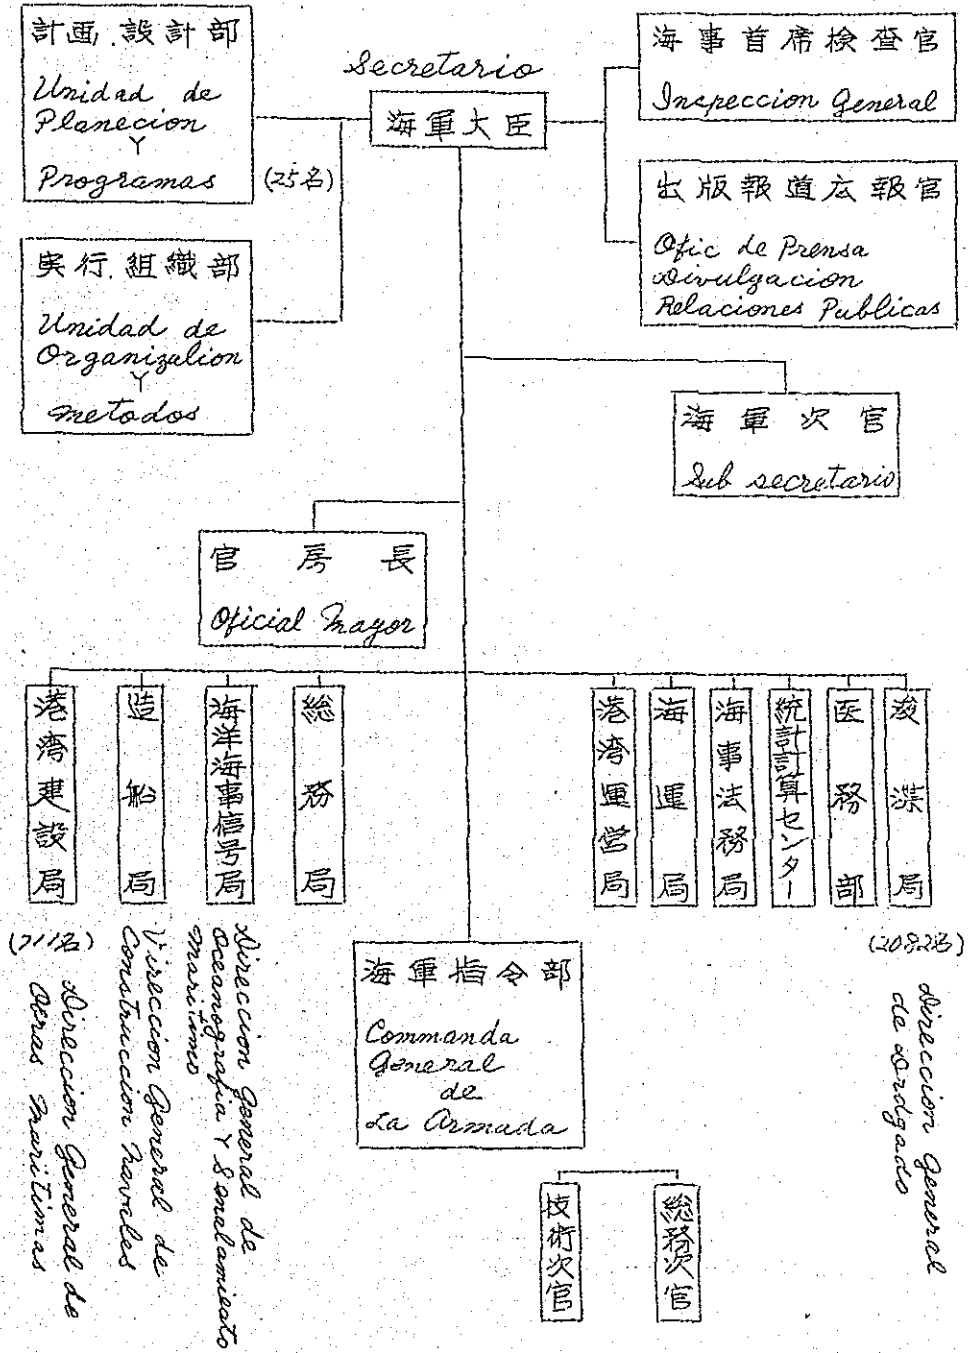 計画.設計部
Unidad de
Planecion
Y
Programas
(25名)
Secretario
海軍大臣
海事首席検査官
Inspeccion General
出版報道広報官
Ofic de Prensa
Divulgacion
Relaciones Publicas
実行.組織部
Unidad de
Organizalion
Y
metodos
海軍次官
Sub secretario
官房長
Oficial Mayor
港湾建設局
造船局
海洋海事信号局
総務局
港湾運営局
海運局
海事法務局
統計計算センター
医務部
浚渫局
(711名)
Direccion General de
Obras Maritimas
Direccion General de
Construccion Navales
Direccion General de
Oceanografia Y Senalamiento
maritimo
(2082名)
Direccion General
de Drdgado
海軍指令部
Commanda
General
de
La Armada
技術次官
総務次官